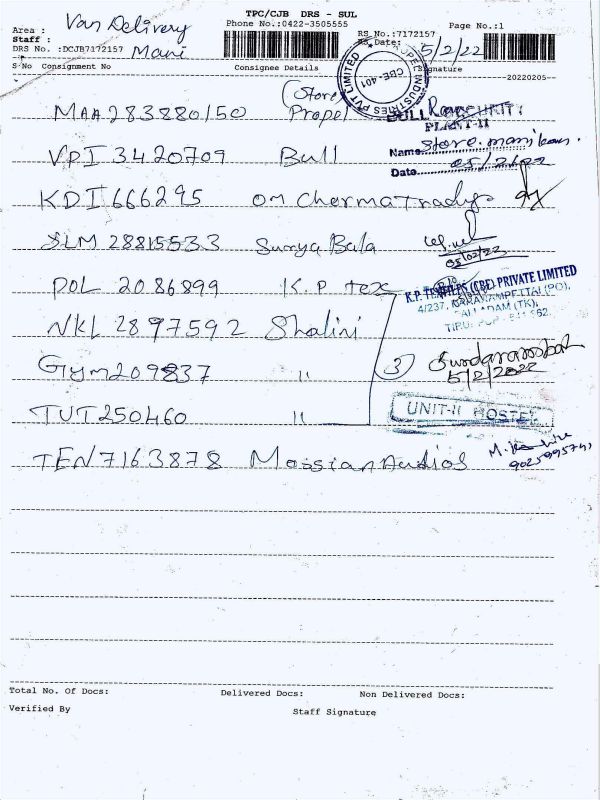 TPC/CJB DRS - SUL
Area : Van Delivery
Phone No.:0422-3505555
Page No.:1
Staff : Mani
RS No.:7172157
DRS No. :DCJB7172157
RS Date: 5/2/22
S No Consignment No Consignee Details Signature
20220205
CBE-401
MAA283880150 (Store Propel
BULL
SECURITY
PLANT-II
VPI 3420709 Bull
Name
Date 05/2/22
KDI 666295 Om Cherma Tradgs
SLM 28815533 Surya Bala
05/02/22
POL 2086899 K.P tex
K.P. TEXTILES (CBE) PRIVATE LIMITED
4/237,
NKL 2897592 Shalini
Gym209837 "
3
5/2/2022
TUT250460 "
UNIT-II HOSTEL
TEN7163878 Mossian Audios
Total No. Of Docs: Delivered Docs: Non Delivered Docs:
Verified By Staff Signature